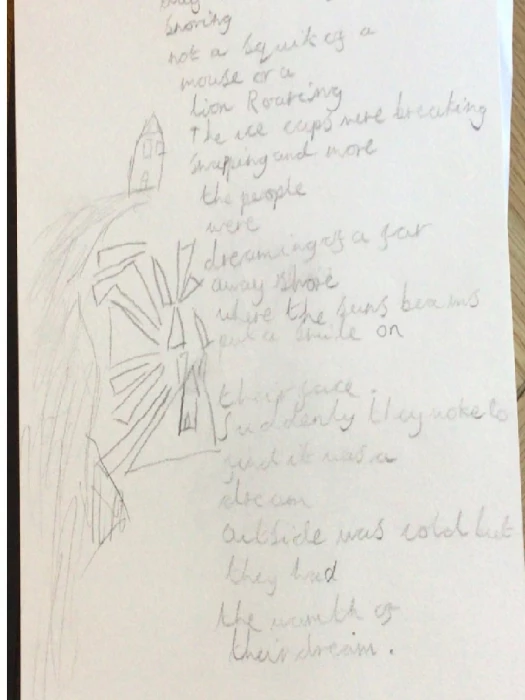 Snoring
not a squik of a
mouse or a
Lion Roaring
The ice caps were breaking
Snapping and more
the people
were
dreaming of a far
away shore
where the suns beams
put a smile on
their face.
Suddenly they woke to
find it was a
dream
outside was cold but
they had
the warmth of
their dream.